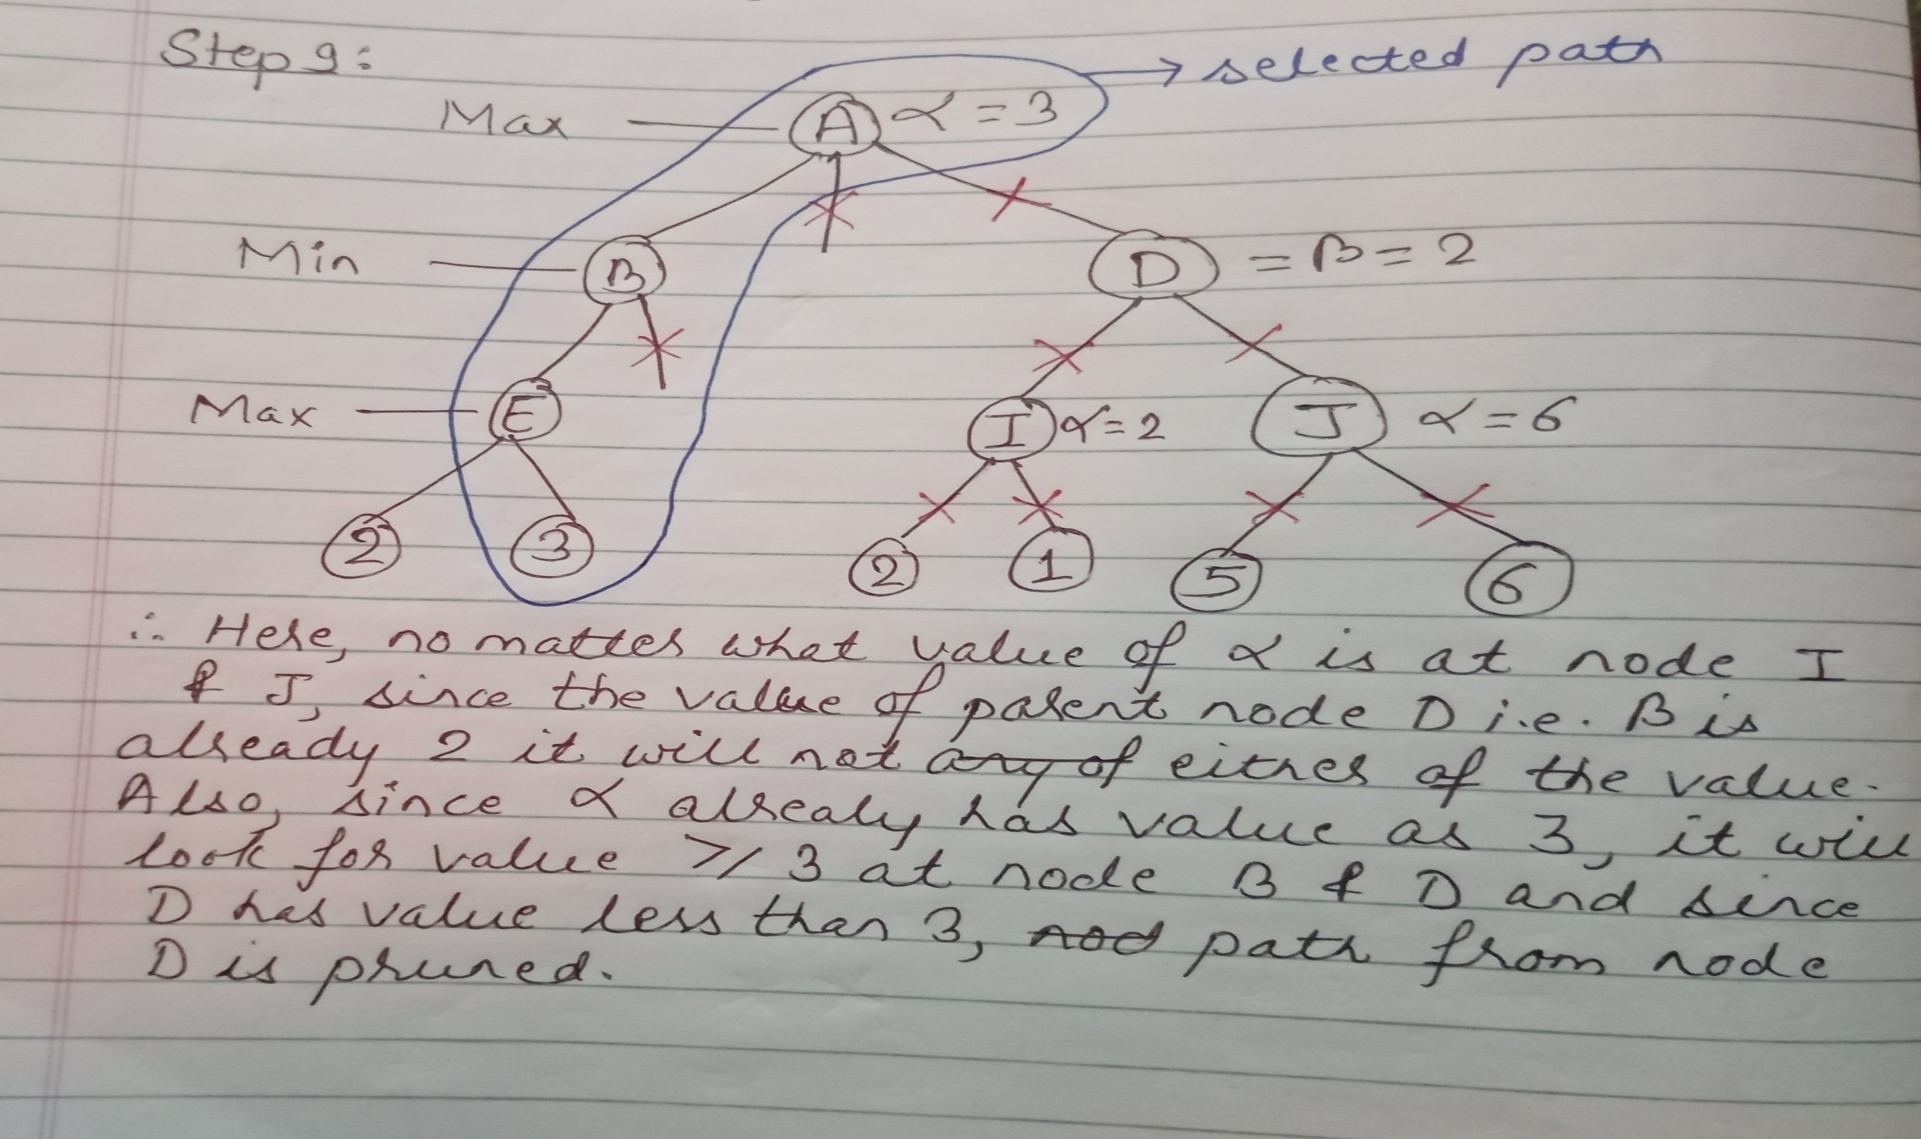 Step 9:
→ selected path
Max — A α = 3
Min — B D = β = 2
Max — E I α = 2 J α = 6
2 3 2 1 5 6
∴ Here, no matter what value of α is at node I
& J, since the value of parent node D i.e. β is
already 2 it will not any of either of the value.
Also, since α alrealy has value as 3, it will
look for value ≥ 3 at node B & D and since
D has value less than 3, nod path from node
D is pruned.